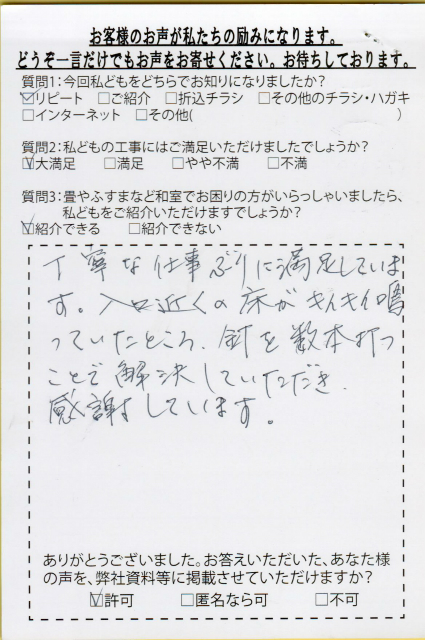 お客様のお声が私たちの励みになります。
どうぞ一言だけでもお声をお寄せください。お待ちしております。
質問1:今回私どもをどちらでお知りになりましたか?
☑リピート □ご紹介 □折込チラシ □その他のチラシ・ハガキ
□インターネット □その他( )
質問2:私どもの工事にはご満足いただけましたでしょうか?
☑大満足 □満足 □やや不満 □不満
質問3:畳やふすまなど和室でお困りの方がいらっしゃいましたら、
私どもをご紹介いただけますでしょうか?
☑紹介できる □紹介できない
丁寧な仕事ぶりに満足していま
す。入口近くの床がキィキィ鳴
っていたところ、釘を数本打つ
ことで解決していただき、
感謝しています。
ありがとうございました。お答えいただいた、あなた様
の声を、弊社資料等に掲載させていただけますか?
☑許可 □匿名なら可 □不可